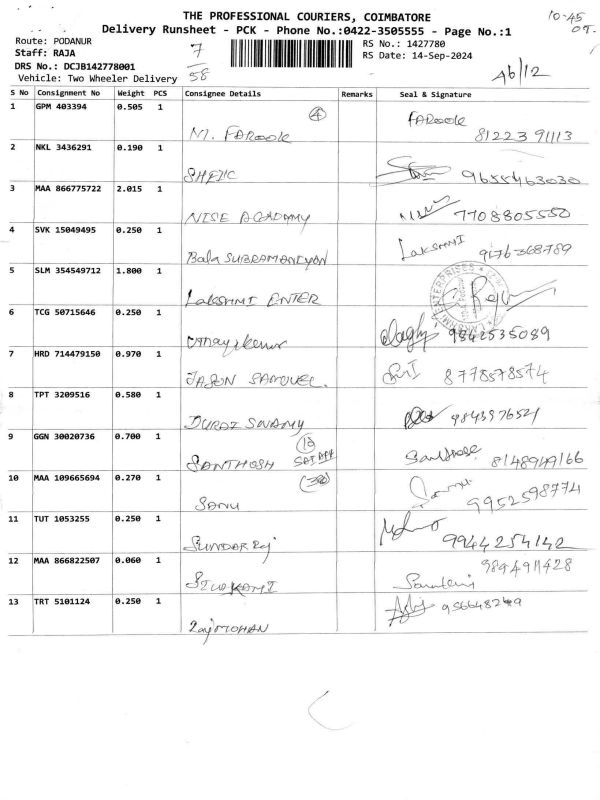 THE PROFESSIONAL COURIERS, COIMBATORE
10-45
Delivery Runsheet - PCK - Phone No.:0422-3505555 - Page No.:1
Route: PODANUR
7
RS No.: 1427780
Staff: RAJA
RS Date: 14-Sep-2024
DRS No.: DCJB142778001
58
Vehicle: Two Wheeler Delivery
Ab/12
S No Consignment No Weight PCS Consignee Details Remarks Seal & Signature
1 GPM 403394 0.505 1 4 FAROOK
M. FAROOK 81223 91113
2 NKL 3436291 0.190 1
SHEIK 9655463030
3 MAA 866775722 2.015 1
NISE ACADAMY 7708805550
4 SVK 15049495 0.250 1 LAKSHMI
Bala SUBRAMANIYAN 9176368789
5 SLM 354549712 1.800 1
LAKSHMI ENTER
6 TCG 50715646 0.250 1
Vinayakumar 9842535089
7 HRD 714479150 0.970 1
JASON SAMUEL. 8778578574
8 TPT 3209516 0.580 1
DURAI SWAMY 9843976521
9 GGN 30020736 0.700 1 10
SANTHOSH 8148949166
10 MAA 109665694 0.270 1 30
SANU 9952598774
11 TUT 1053255 0.250 1
SUNDAR Raj 9944254142
12 MAA 866822507 0.060 1 9894911428
SIVAKAMI
13 TRT 5101124 0.250 1
RajMOHAN